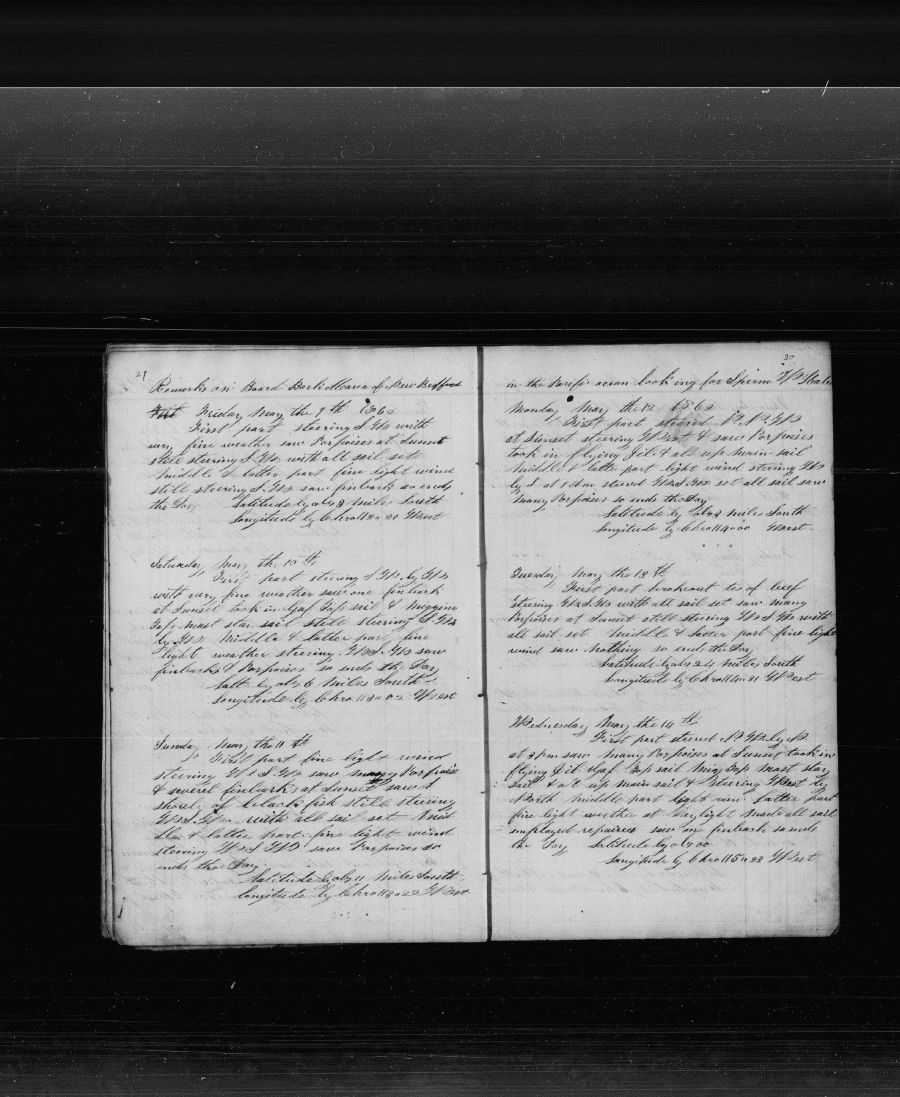 29
Remarks on Board Bark of New Bedford
First Friday May the 9th 1862
First part steering S.W. with
very fine weather saw Porpoises at Sunset
still steering S.W. with all sail set
middle & latter part fine light wind
still steering S.W. saw finbacks so ends
the Day Latitude by obs 3 Miles South
Longitude by Chro West
Saturday May the 10th
First part steering S.W. by W.
with very fine weather saw one finback
at Sunset took in Gaf Top sail &
Top mast stay sail still steering S.W.
by W. Middle & latter part fine
light weather steering W.S.W. saw
finbacks & Porpoises so ends the Day
Latt by obs 6 Miles South
Longitude by Chro West
Sunday May the 11th
First part fine light wind
steering W.S.W. saw many Porpoises
& several finbacks at Sunset saw a
of black fish still steering
W.S.W. with all sail set Mid
dle & latter part fine light wind
steering W.S.W. saw Porpoises so
ends the Day
Latitude by obs 11 Miles South
Longitude by Chro West
30
in the Pacific ocean looking for Sperm Whales
Monday May the 12 1862
First part steered
at Sunset steering West & saw Porpoises
took in flying jib & all up main sail
Middle & latter part light wind steering
by S. at 1 Am steered W.S.W. set all sail saw
many Porpoises so ends the Day
Latitude by obs 3 Miles South
Longitude by Chro 114 00 West
Tuesday May the 13th
First part of beef
steering W.S.W. with all sail set saw many
Porpoises at Sunset still steering W.S.W. with
all sail set Middle & latter part fine light
wind saw nothing so ends the Day
Latitude by obs 24 Miles South
Longitude by Chro West
Wednesday May the 14th
First part steered N.W. by N.
at 3 pm saw many Porpoises at Sunset took in
flying Jib Gaf Top sail Top Mast stay
sail & all up main sail & steering West by
North Middle part light rain latter part
fine light weather at Daylight made all sail
employed repaired saw one finback so ends
the Day Latitude by obs
Longitude by Chro West